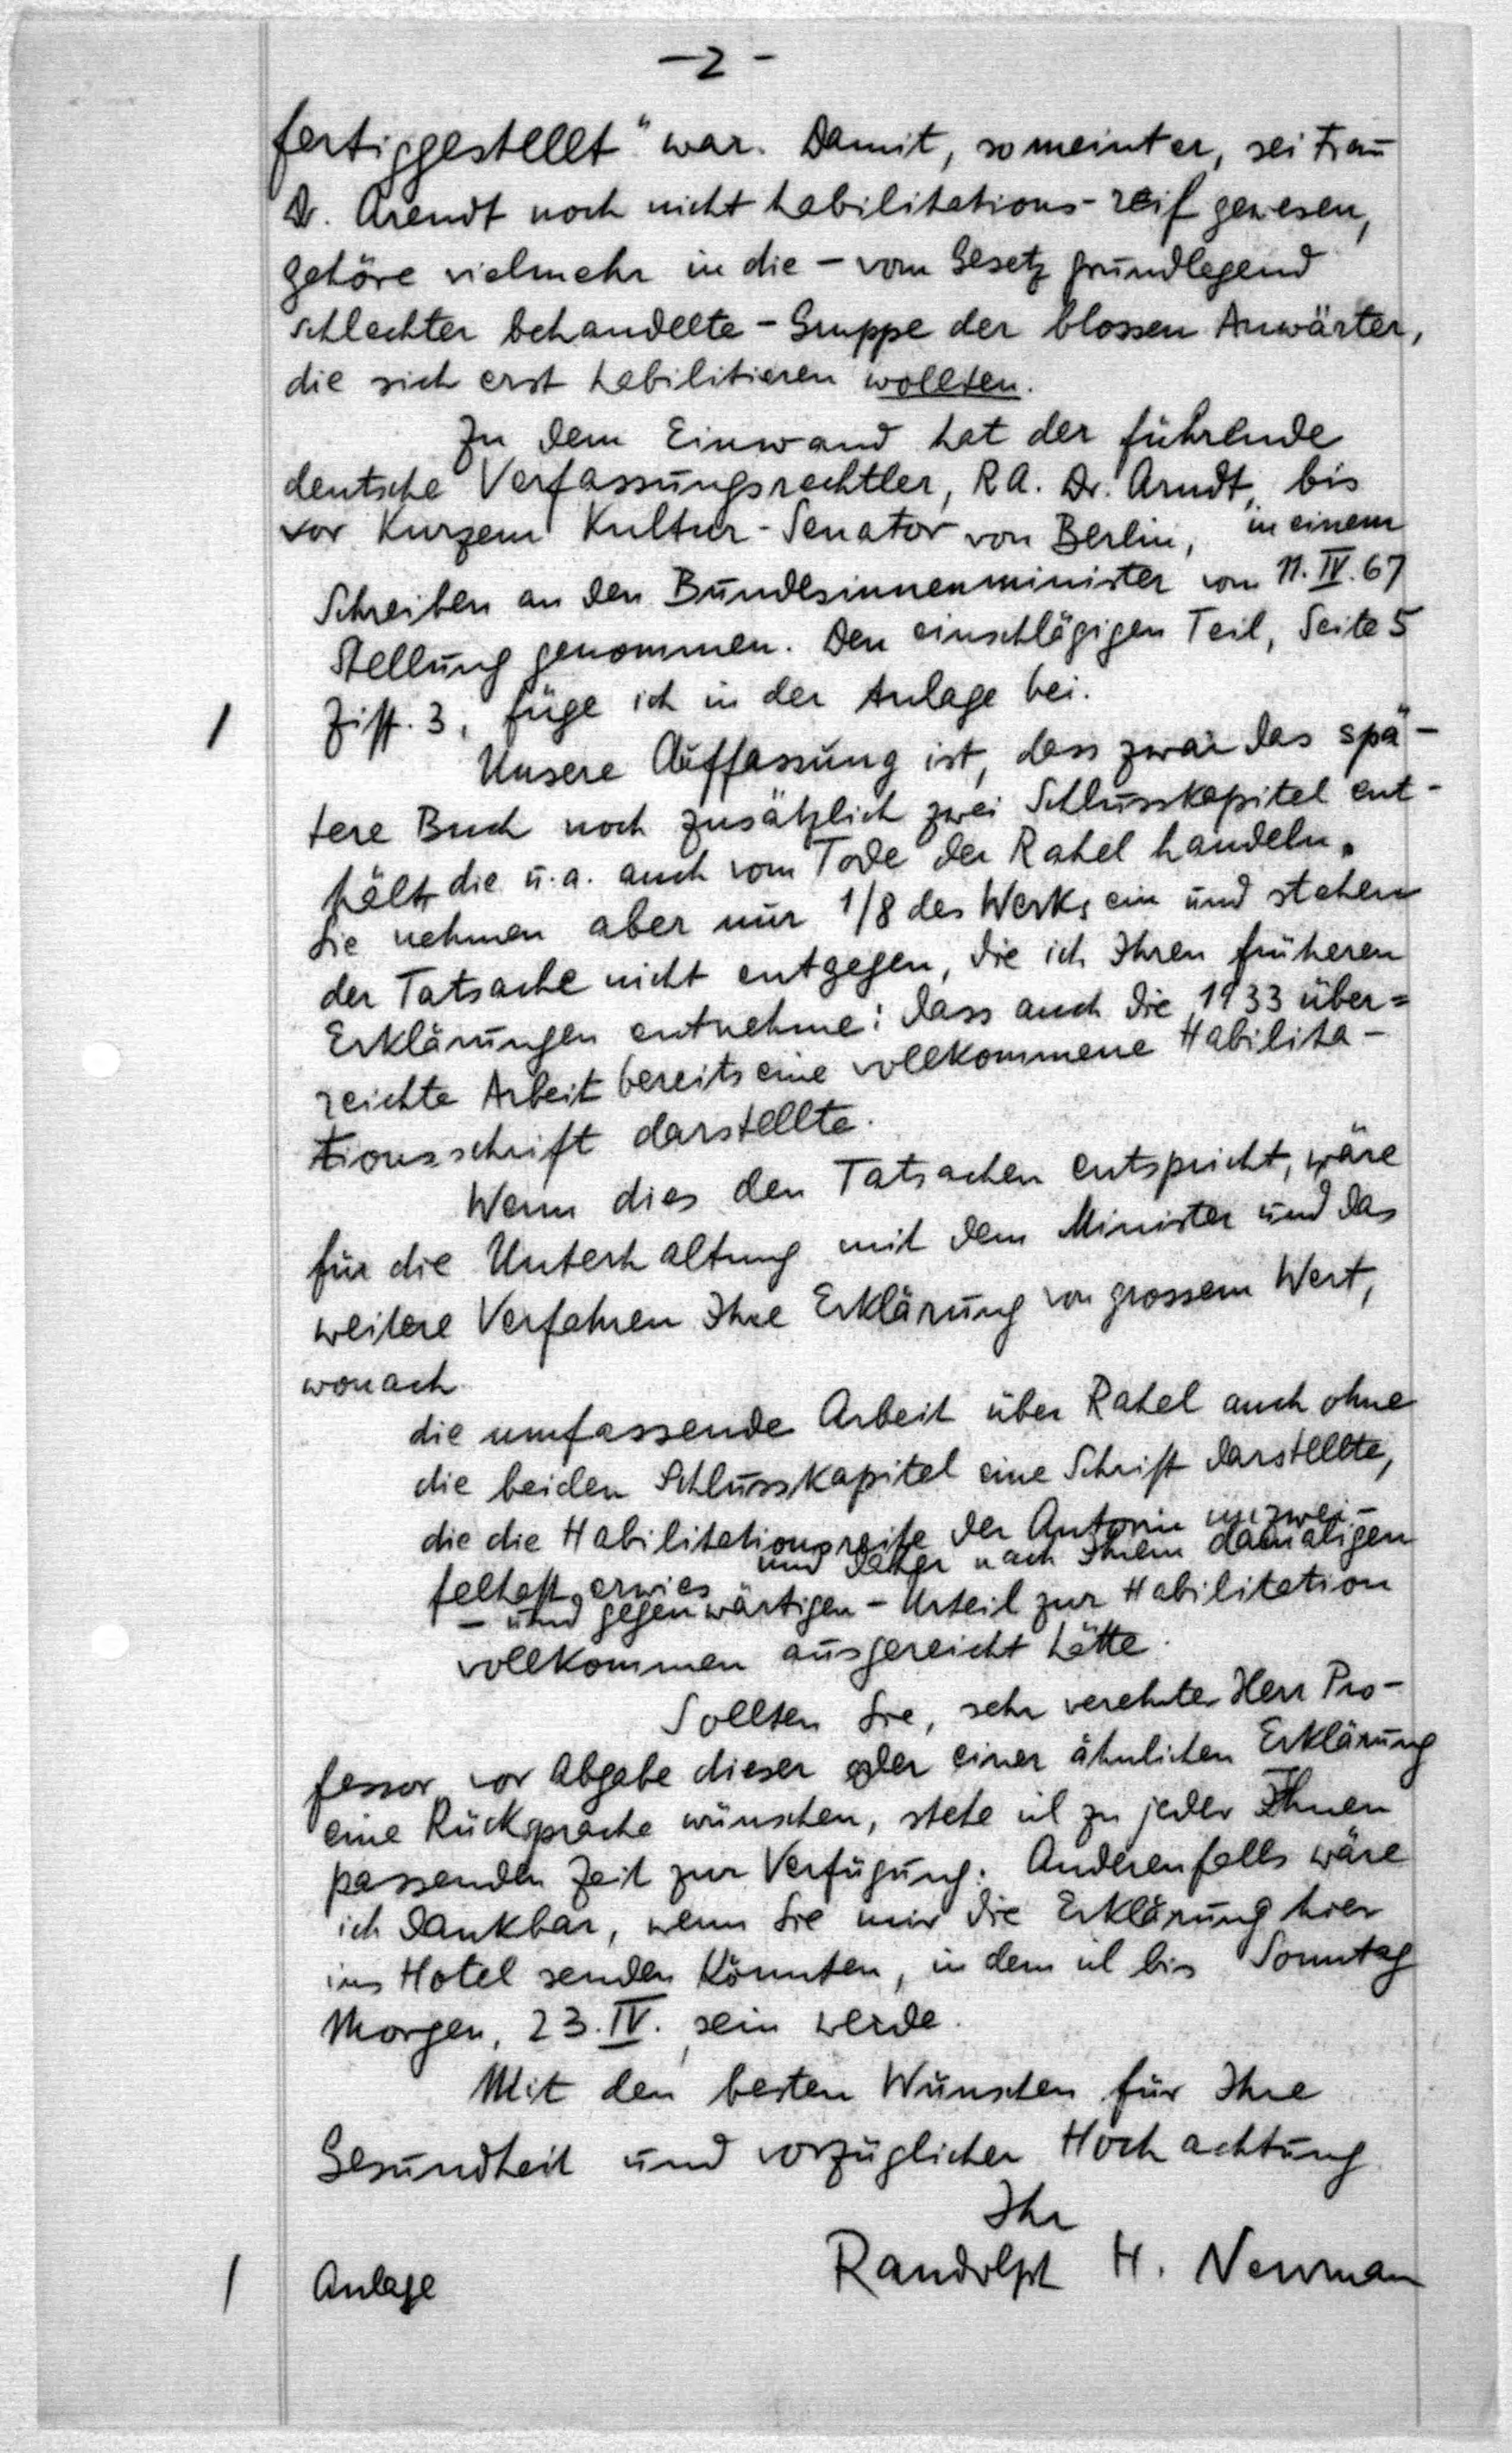 - 2 -
fertiggestellt" war. Damit, so meint er, sei Frau
Dr. Arendt noch nicht habilitations-reif gewesen,
gehöre vielmehr in die - vom Gesetz grundlegend
schlechter behandelte - Gruppe der blossen Anwärter,
die sich erst habilitieren wollten.
Zu dem Einwand hat der führende
deutsche Verfassungsrechtler, RA. Dr. Arndt, bis
vor Kurzem Kultur-Senator von Berlin, in einem
Schreiben an den Bundesinnenminister vom 11. IV. 67
Stellung genommen. Den einschlägigen Teil, Seite 5
/ Ziff. 3, füge ich in der Anlage bei.
Unsere Auffassung ist, dass zwar das spä-
tere Buch noch zusätzlich zwei Schlusskapitel ent-
hält, die u.a. auch vom Tode der Rahel handeln.
Sie nehmen aber nur 1/8 des Werks ein und stehen
der Tatsache nicht entgegen, die ich Ihren früheren
Erklärungen entnehme: dass auch die 1933 über=
reichte Arbeit bereits eine vollkommene Habilita-
tionsschrift darstellte.
Wenn dies den Tatsachen entspricht, wäre
für die Unterhaltung mit dem Minister und das
weitere Verfahren Ihre Erklärung von grossem Wert,
wonach
die umfassende Arbeit über Rahel auch ohne
die beiden Schlusskapitel eine Schrift darstellte,
die die Habilitationsreife der Autorin unzwei-
felhaft erwies und daher nach Ihrem damaligen
- und gegenwärtigen - Urteil zur Habilitation
vollkommen ausgereicht hätte.
Sollten Sie, sehr verehrter Herr Pro-
fessor, vor Abgabe dieser oder einer ähnlichen Erklärung
eine Rücksprache wünschen, stehe ich zu jeder Ihnen
passenden Zeit zur Verfügung. Anderenfalls wäre
ich dankbar, wenn Sie mir die Erklärung hier
ins Hotel senden könnten, in dem ich bis Sonntag
Morgen, 23. IV., sein werde.
Mit den besten Wünschen für Ihre
Gesundheit und vorzüglicher Hochachtung
Ihr
Randolph H. Newman
/ Anlage